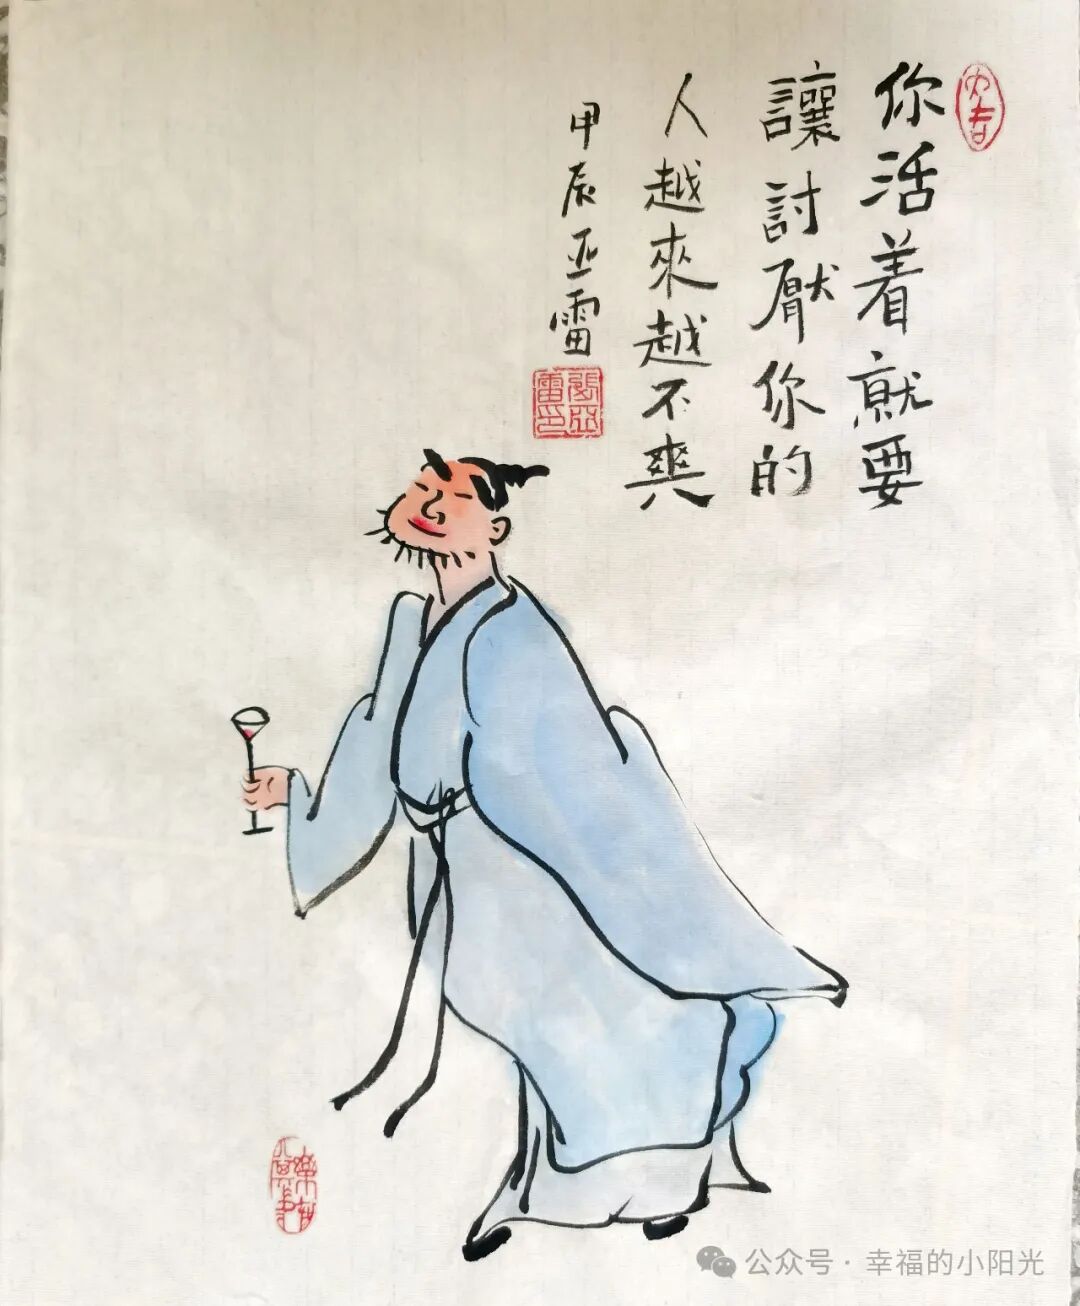 你活着就要
讓討厭你的
人越來越不爽
甲辰亚雷
大吉
公众号 · 幸福的小阳光